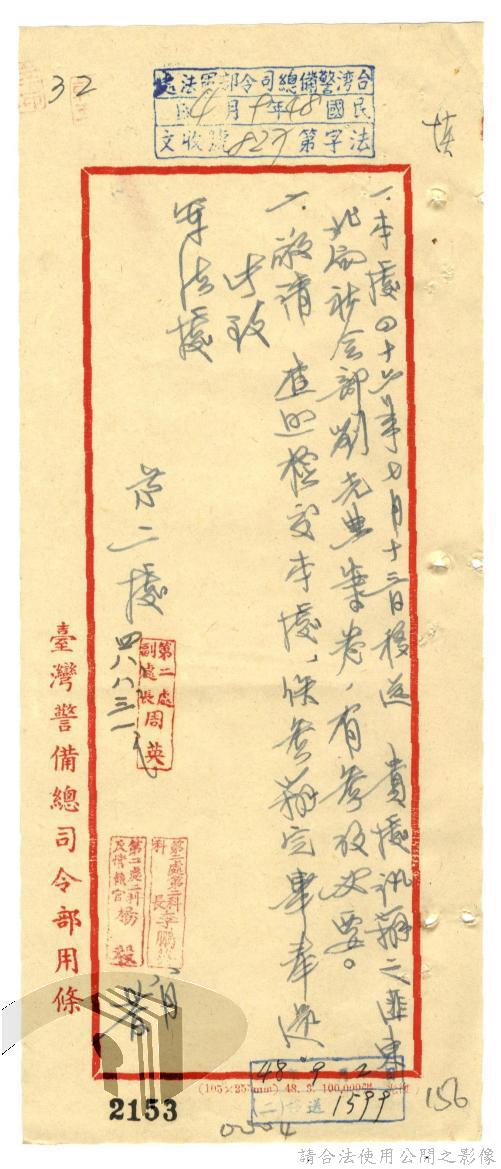 32
台灣警備總司令部軍法處
民國48年9月4日
法字第827號收文
一、本處四十六年七月十三日移送 貴處訊辦之匪東
北局社會部劉光典案卷,有參攷必要。
一、敬請 查照檢交本處,俟參辦完畢奉還。
此致
軍法處
第二處 四八、八、三一
第二處
副處長 周英
第二處第二科
科長 李鵬
第二處二科
反情報官 楊毅
臺灣警備總司令部用條
48 9 2
送 1599
2153
156
0004
請合法使用公開之影像